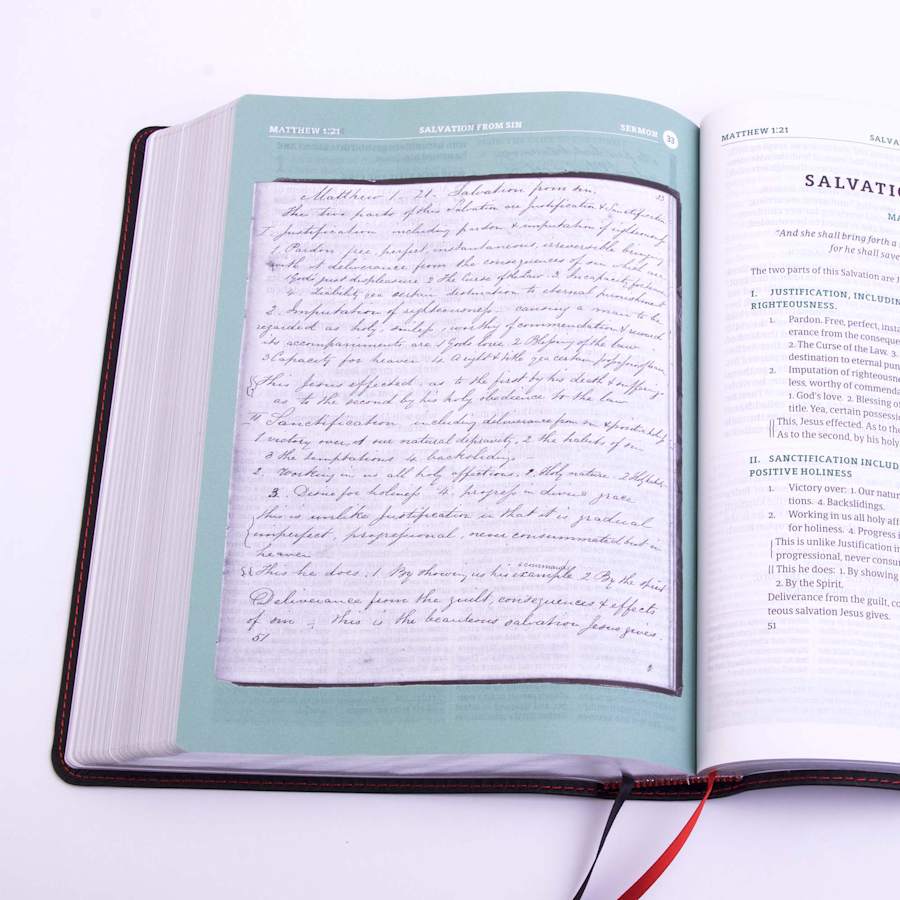 MATTHEW 1:21 SALVATION FROM SIN SERMON 33
Matthew 1. 21. Salvation from sin. 33
The two parts of this Salvation are Justification & Sanctification
I. Justification including pardon & imputation of righteousness
1 Pardon free, perfect, instantaneous, irreversible bringing
with it deliverance from the consequences of sin which are
1 Gods just displeasure 2 The Curse of the Law 3 Incapacity for
4 Liability yea certain destination to eternal punishment
2. Imputation of righteousness - causing a man to be
regarded as holy, sinless, worthy of commendation & reward
its accompaniments are 1 Gods love 2 Blessing of the law
3 Capacity for heaven 4 A right & title yea certain
This Jesus effected, as to the first by his death & sufferings
as to the second by his holy obedience to the law
II Sanctification including deliverance from sin & positive
1. victory over our natural depravity, 2 the habits of sin
3 the temptations 4 backslidings -
2. Working in us all holy affections. 1 Holy nature. 2
3. Desire for holiness 4. progress in divine grace
this is unlike Justification in that it is gradual
imperfect, progressional, never consummated but in
heaven
commands
This he does. 1 By showing us his example 2 By the spirit
Deliverance from the guilt, consequences & effects
of sin - this is the beauteous salvation Jesus gives.
51
MATTHEW 1:21 SALVA
SALVATIO
MA
"And she shall bring forth a
for he shall save
The two parts of this Salvation are J
I. JUSTIFICATION, INCLUDIN
RIGHTEOUSNESS.
1. Pardon. Free, perfect, insta
erance from the conseque
2. The Curse of the Law. 3.
destination to eternal pun
2. Imputation of righteousne
less, worthy of commenda
1. God's love. 2. Blessing of
title. Yea, certain possessi
This, Jesus effected. As to the
As to the second, by his holy
II. SANCTIFICATION INCLUD
POSITIVE HOLINESS
1. Victory over: 1. Our natur
tions. 4. Backslidings.
2. Working in us all holy aff
for holiness. 4. Progress i
This is unlike Justification in
progressional, never consu
This he does: 1. By showing
2. By the Spirit.
Deliverance from the guilt, co
teous salvation Jesus gives.
51